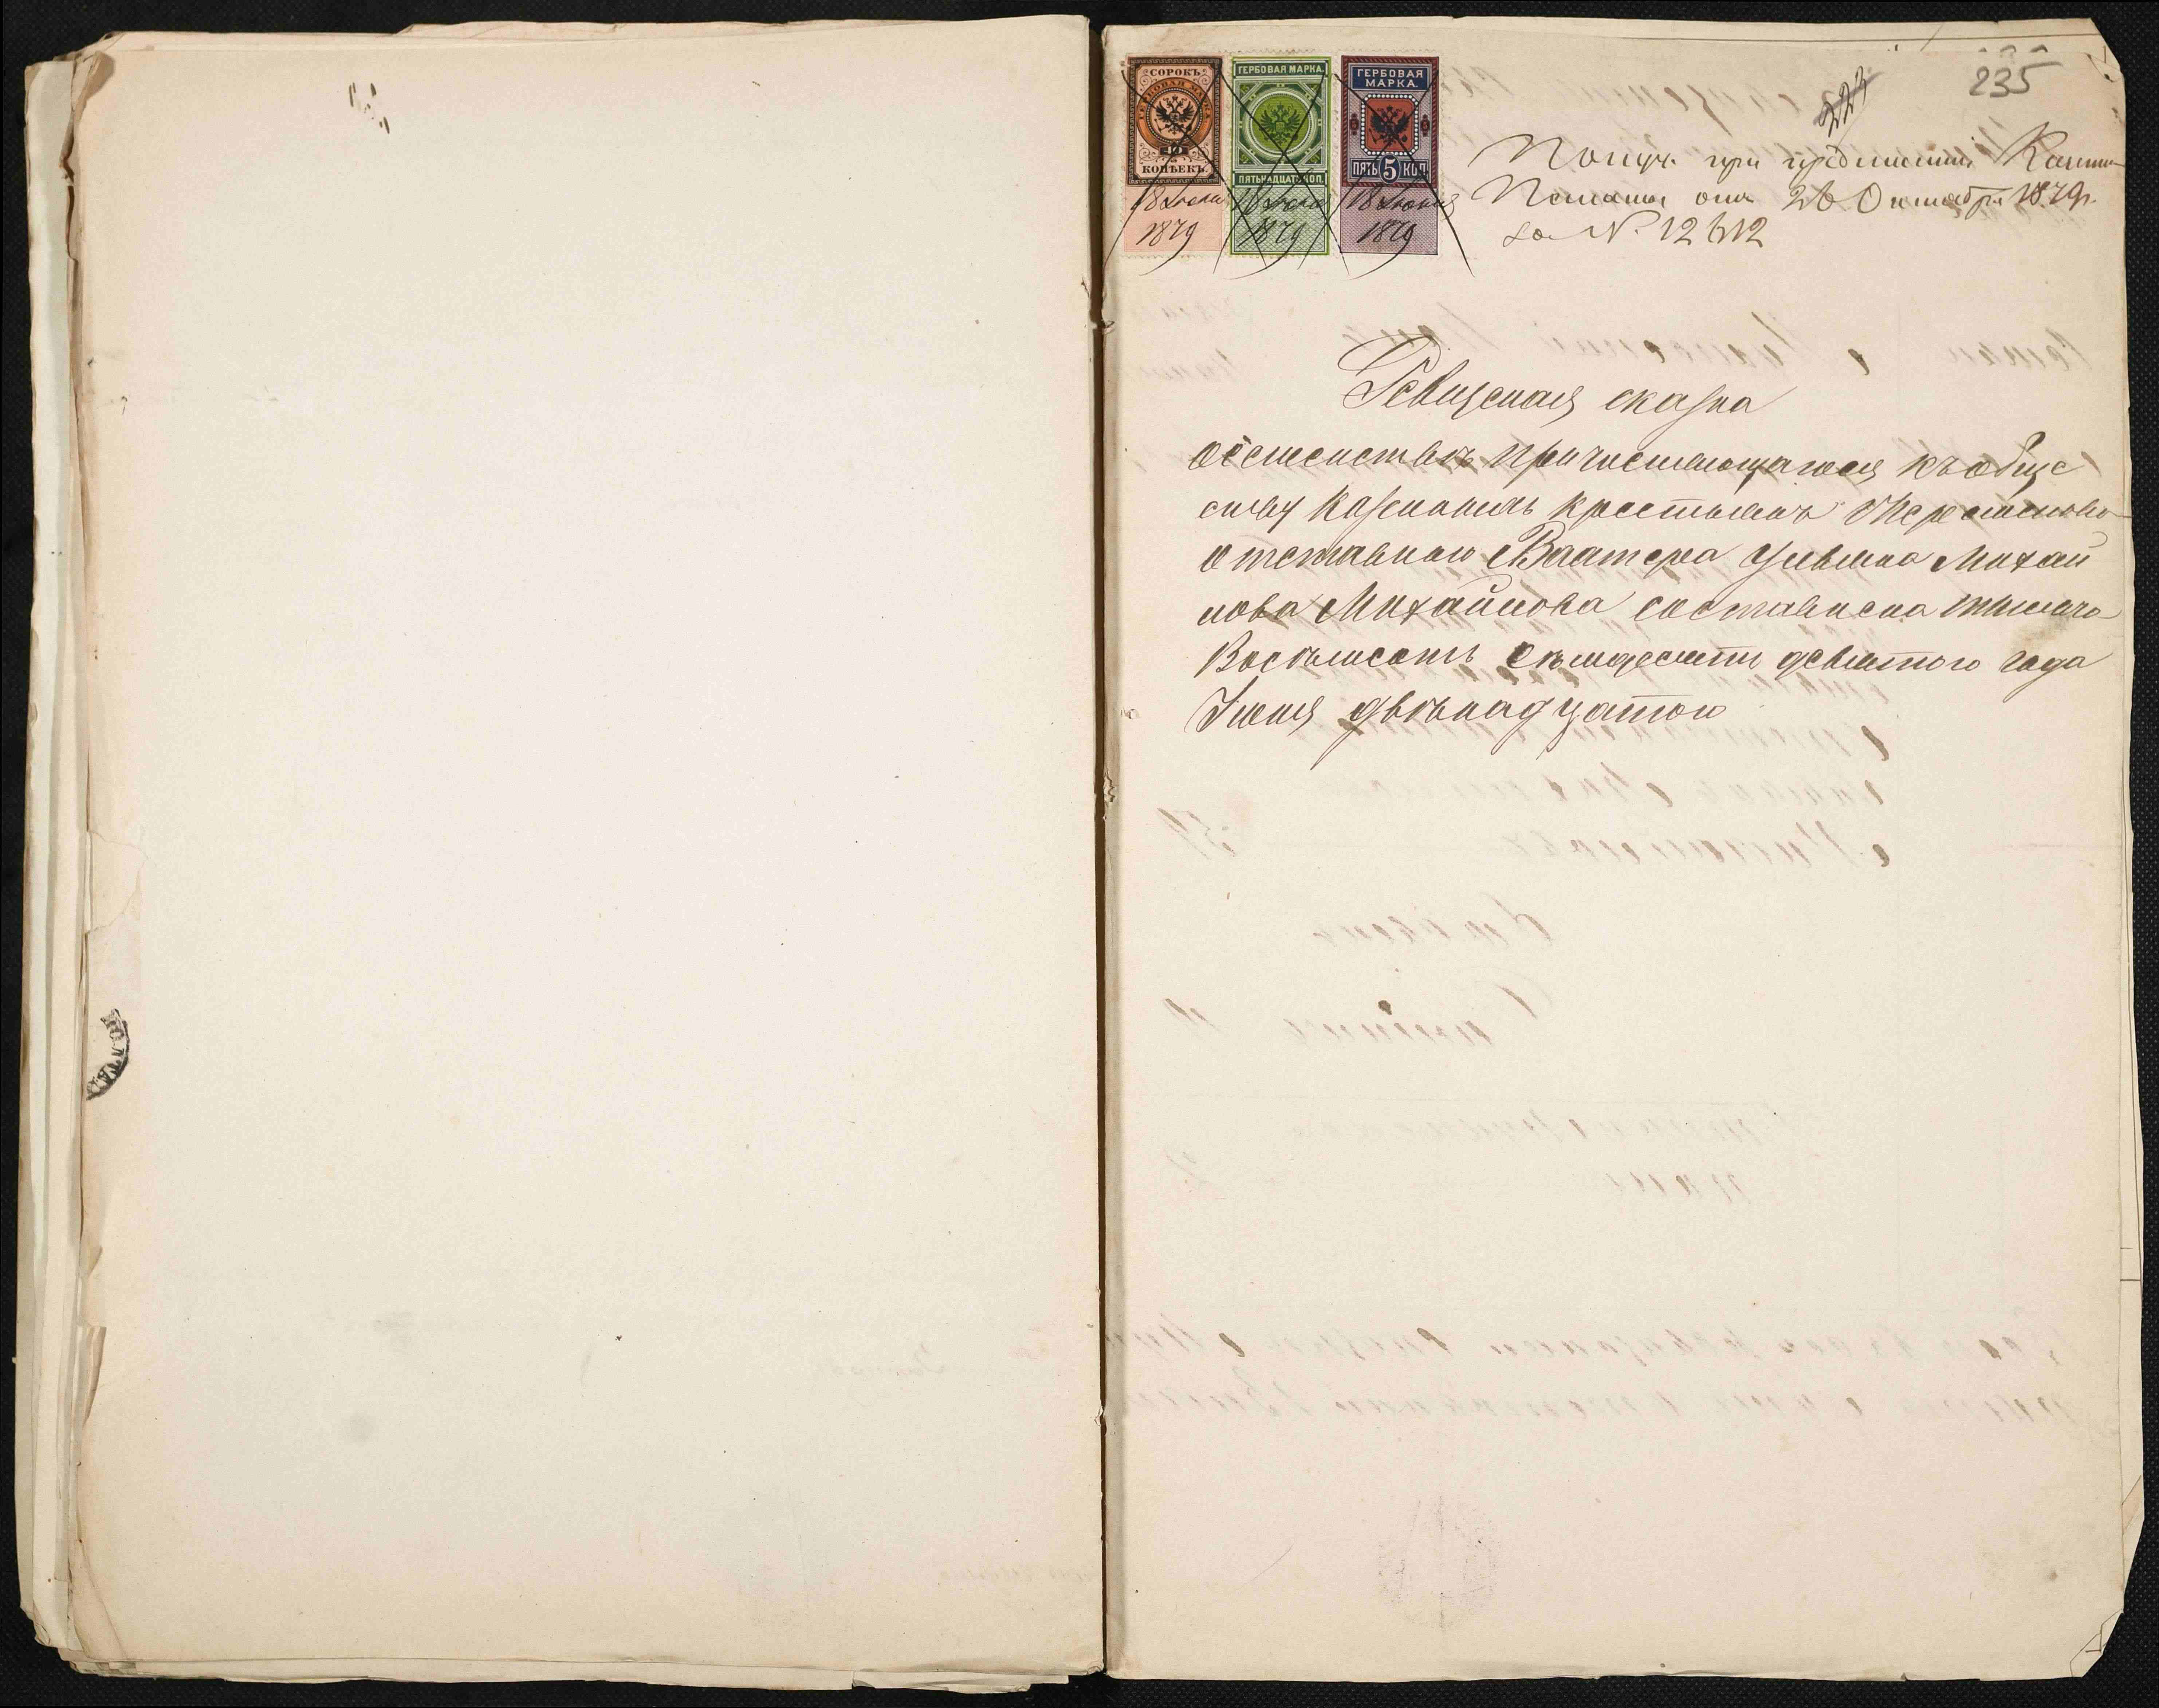 235
223
СОРОКЪ
ГЕРБОВАЯ МАРКА
40
КОПѢЕКЪ
18 Июня
1879
ГЕРБОВАЯ МАРКА.
ПЯТЬНАДЦАТЬ КОП.
18 Июня
1879
ГЕРБОВАЯ
МАРКА.
ПЯТЬ 5 КОП.
18 Июня
1879
Получ. при предписаніи Казен.
Палаты отъ 26 Октября 1879 г.
за № 12612
Ревизская сказка
о семействѣ причисляющагося къ обще
ству казенныхъ крестьянъ
отставного Вахтера Михай
лова Михайлова составлена тысяча
Восемьсотъ семьдесятъ девятого года
Іюня двѣнадцатого